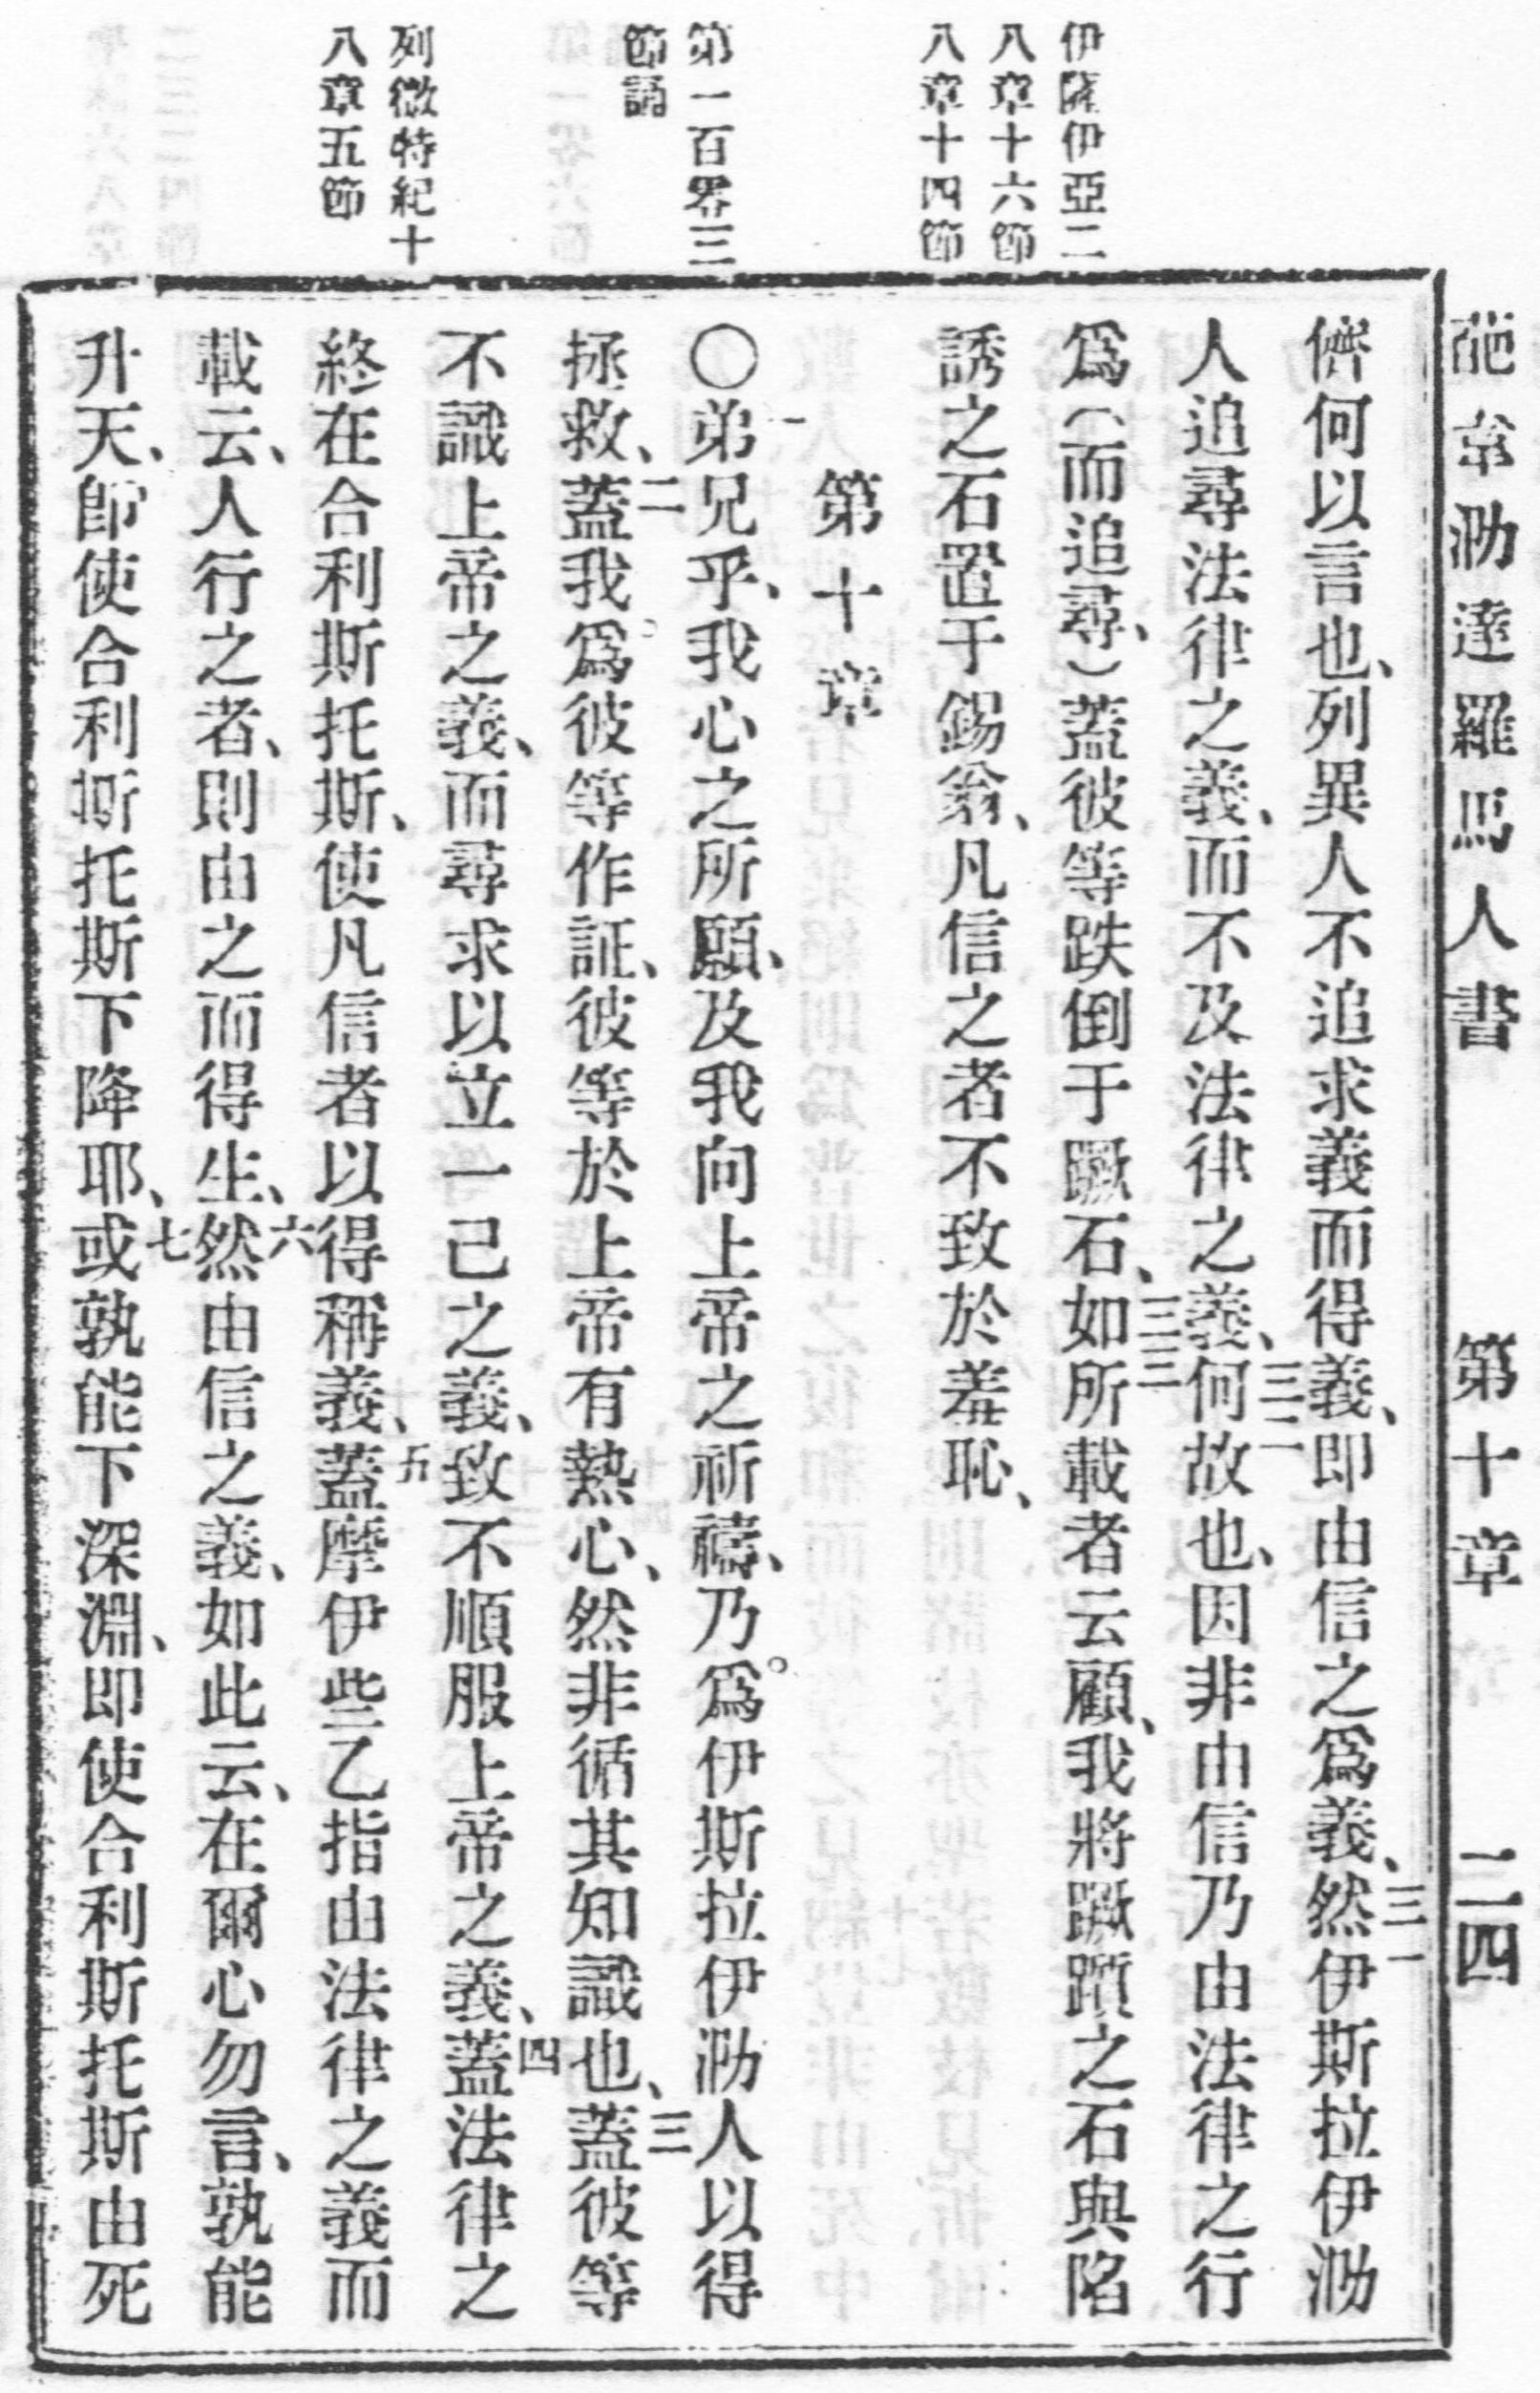 葩韋泐達羅馬人書 第十章 二四
伊薩伊亞二
八章十六節
八章十四節
第一百零三
節誦
列微特紀十
八章五節
儕何以言也、列異人不追求義而得義、即由信之爲義、三一然伊斯拉伊泐
人追尋法律之義、而不及法律之義、三二何故也、因非由信乃由法律之行
爲(而追尋、)蓋彼等跌倒于蹶石、三三如所載者云顧、我將蹶躓之石與陷
誘之石置于錫翁、凡信之者不致於羞恥、
第十章
〇一弟兄乎、我心之所願、及我向上帝之祈禱、乃爲伊斯拉伊泐人以得
拯救、二蓋我爲彼等作証、彼等於上帝有熱心、然非循其知識也、三蓋彼等
不識上帝之義、而尋求以立一己之義、致不順服上帝之義、四蓋法律之
終在合利斯托斯、使凡信者以得稱義、五蓋摩伊些乙指由法律之義而
載云、人行之者、則由之而得生、六然由信之義、如此云、在爾心勿言、孰能
升天、卽使合利斯托斯下降耶、七或孰能下深淵、即使合利斯托斯由死